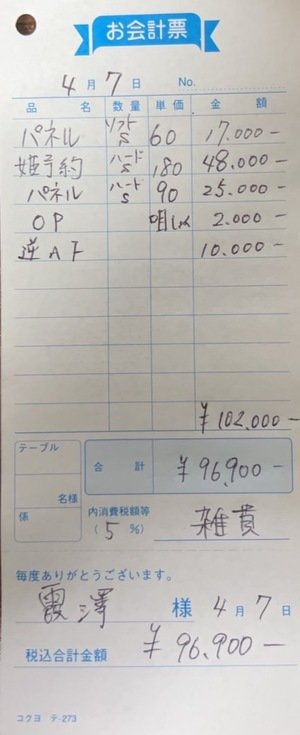 お会計票
4月7日 No.
品名 数量 単価 金額
パネル ソフトS 60 17.000-
姫予約 ハードS 180 48.000-
パネル ハードS 90 25.000-
OP 咀しゃ 2.000-
逆AF 10.000-
¥102,000-
テーブル
名様
係
合計 ¥96,900-
内消費税額等
(5%) 雑貨
毎度ありがとうございます。
霞澤 様 4月7日
税込合計金額 ¥96,900-
コクヨ テ-273